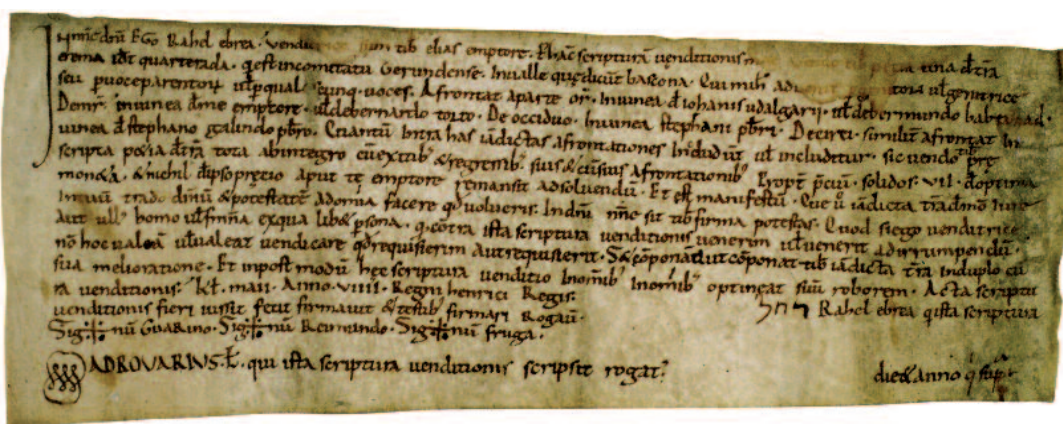 In nm̄e dnī EGo Rahel ebrea. venditrice sum tibi elias emptore. P hāc scripturā venditionis una de t̄ra
erema idest quarterada. q̄ est in comitatu Gerundense. In valle quę dicūt bascona. Qui mihi genitore ul genitrice
seu p uoce parentorū ul p quale cūnq uoces. Afrontat a parte oR. In uinea de iohanis udalgarii. ul de bermundo
Demr̄. in uinea de me emptore. ul de bernardo torto. De occiduo. In uinea stephani pbri. De circi. similit afrontat In
uinea de stephano galindo pbro. Quantū Intra has iādictas afrontationes Includūt ul includetur. sic vendo tibi prę
scripta pecia de t̄ra tota ab integro cū exitib; & regresib; suis & cū suis afrontationib; Propt pciū. solidos. vii. de optima
moneta. & nichil de ipso precio aput te emptore remansit ad solvendū. Et est manifestū. Que u iādicta trado In iure
In tuū trado dn̄iū & potestatē ad omia facere qd volueris. In dn̄i nm̄e sit tibi firma potestas. Quod si ego venditrice
aut ullus homo ul femina ex qua libet p̄sona. q̄ cōtra ista scriptura venditionis venerim ul venerit ad irrumpendū.
nō hoc valeā ul ualeat vendicare qd requisierim aut requisierit. Set cōponā aut cōponat tibi iādicta t̄ra in duplo cū
sua melioratione. Et in post modū hęc scriptura venditio In omib; optineat suū roborem. Acta scriptu
ra venditionis. kl. maii. Anno. viiii. Regni henrici Regis.
רחל Rahel ebrea q̄ ista scriptura
uenditionis fieri iussit fecit firmauit & testib; firmari Rogauī.
Sig+nū Guarino. Sig+nū Reimundo. Sig+nū fruga.
ADROVARIVS. qui ista scriptura uenditionis scripsit rogat;
die & anno q̄ supra